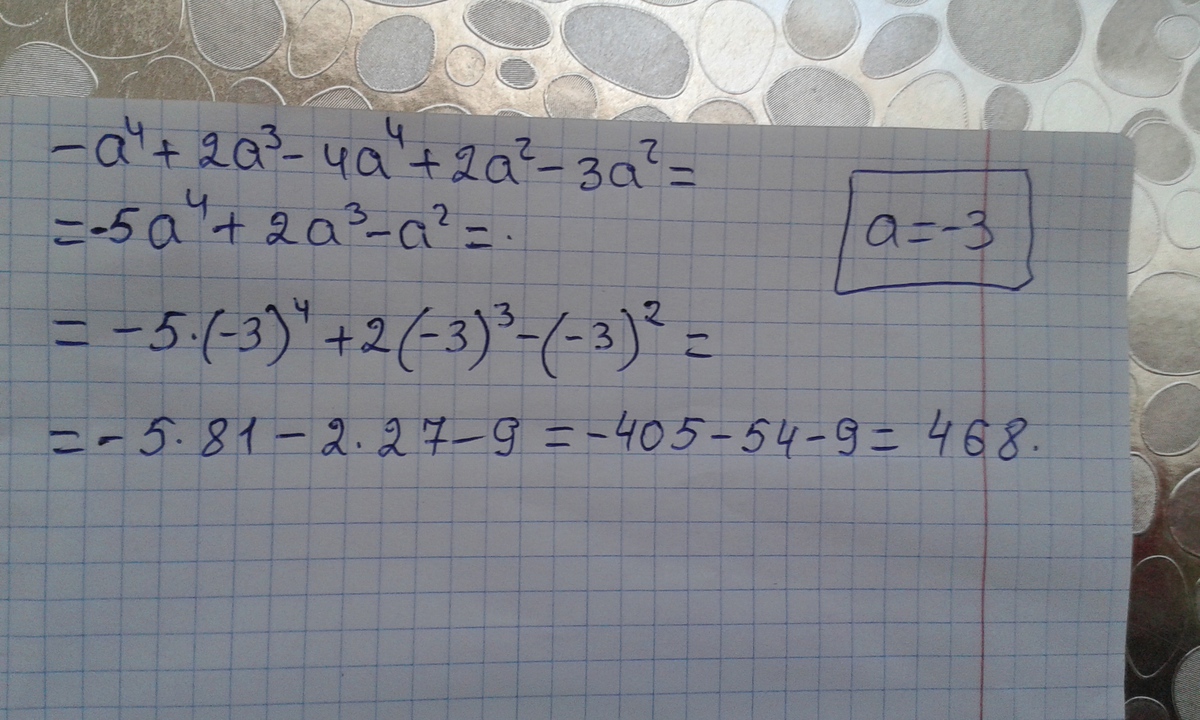 -a⁴ + 2a³ - 4a⁴ + 2a² - 3a² =
= -5a⁴ + 2a³ - a² = .
a = -3
= -5·(-3)⁴ + 2(-3)³ - (-3)² =
= - 5·81 - 2·27 - 9 = -405 - 54 - 9 = 468.